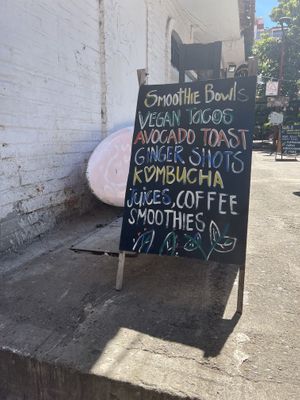 Smoothie Bowls
VEGAN TACOS
AVOCADO TOAST
GINGER SHOTS
KOMBUCHA
JUICES, COFFEE
SMOOTHIES